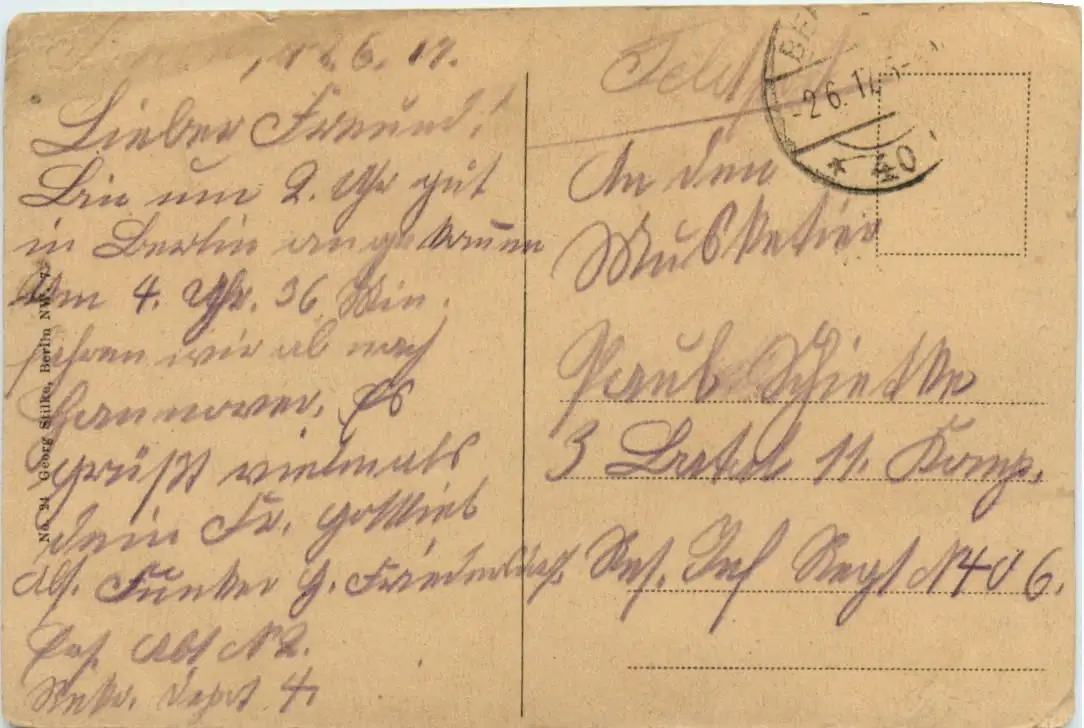 2.6.17.
Lieber Freund!
Bin um 2. Uhr gut
in Berlin angekommen
Um 4. Uhr. 36 Min.
fahren wir ab nach
Hannover. Es
grüßt vielmals
dein Fr. Gottlieb
Abs. Funker G.
Ers. Abt N 2.
Rekr. Depot 4.
No. 24 Georg Stilke, Berlin NW. 7.
Feldpost
BE
-2.6.17.
* 40
An den
Musketier
Paul Schietke
3 Batl. 11. Komp.
Res. Inf Regt N 406.